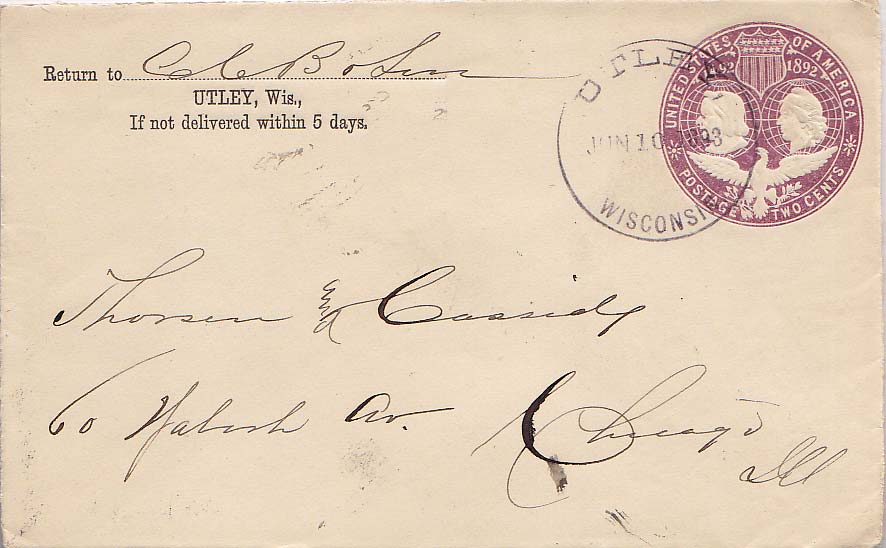 Return to
UTLEY, Wis.,
If not delivered within 5 days.
UTLEY
JUN 10 1893
WISCONSIN
UNITED STATES OF AMERICA
1492 1892
POSTAGE TWO CENTS
Thorsen and Cassidy
60 Wabash Av. Chicago
Ill